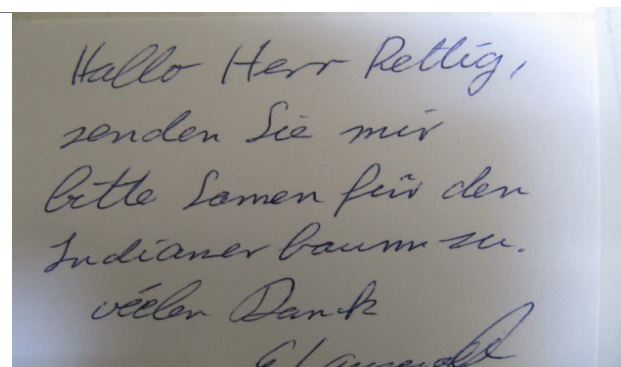 Hallo Herr Rettig,
senden Sie mir
bitte Samen für den
Indianerbaum zu.
vielen Dank